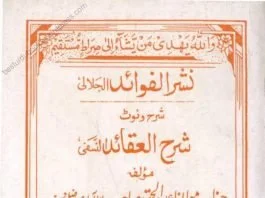 واللہ یھدی من یشآء الی صراط مستقیم
نشر الفوائد الجلالی
شرح ونوٹ
شرح العقائد النسفی
مؤلفہ